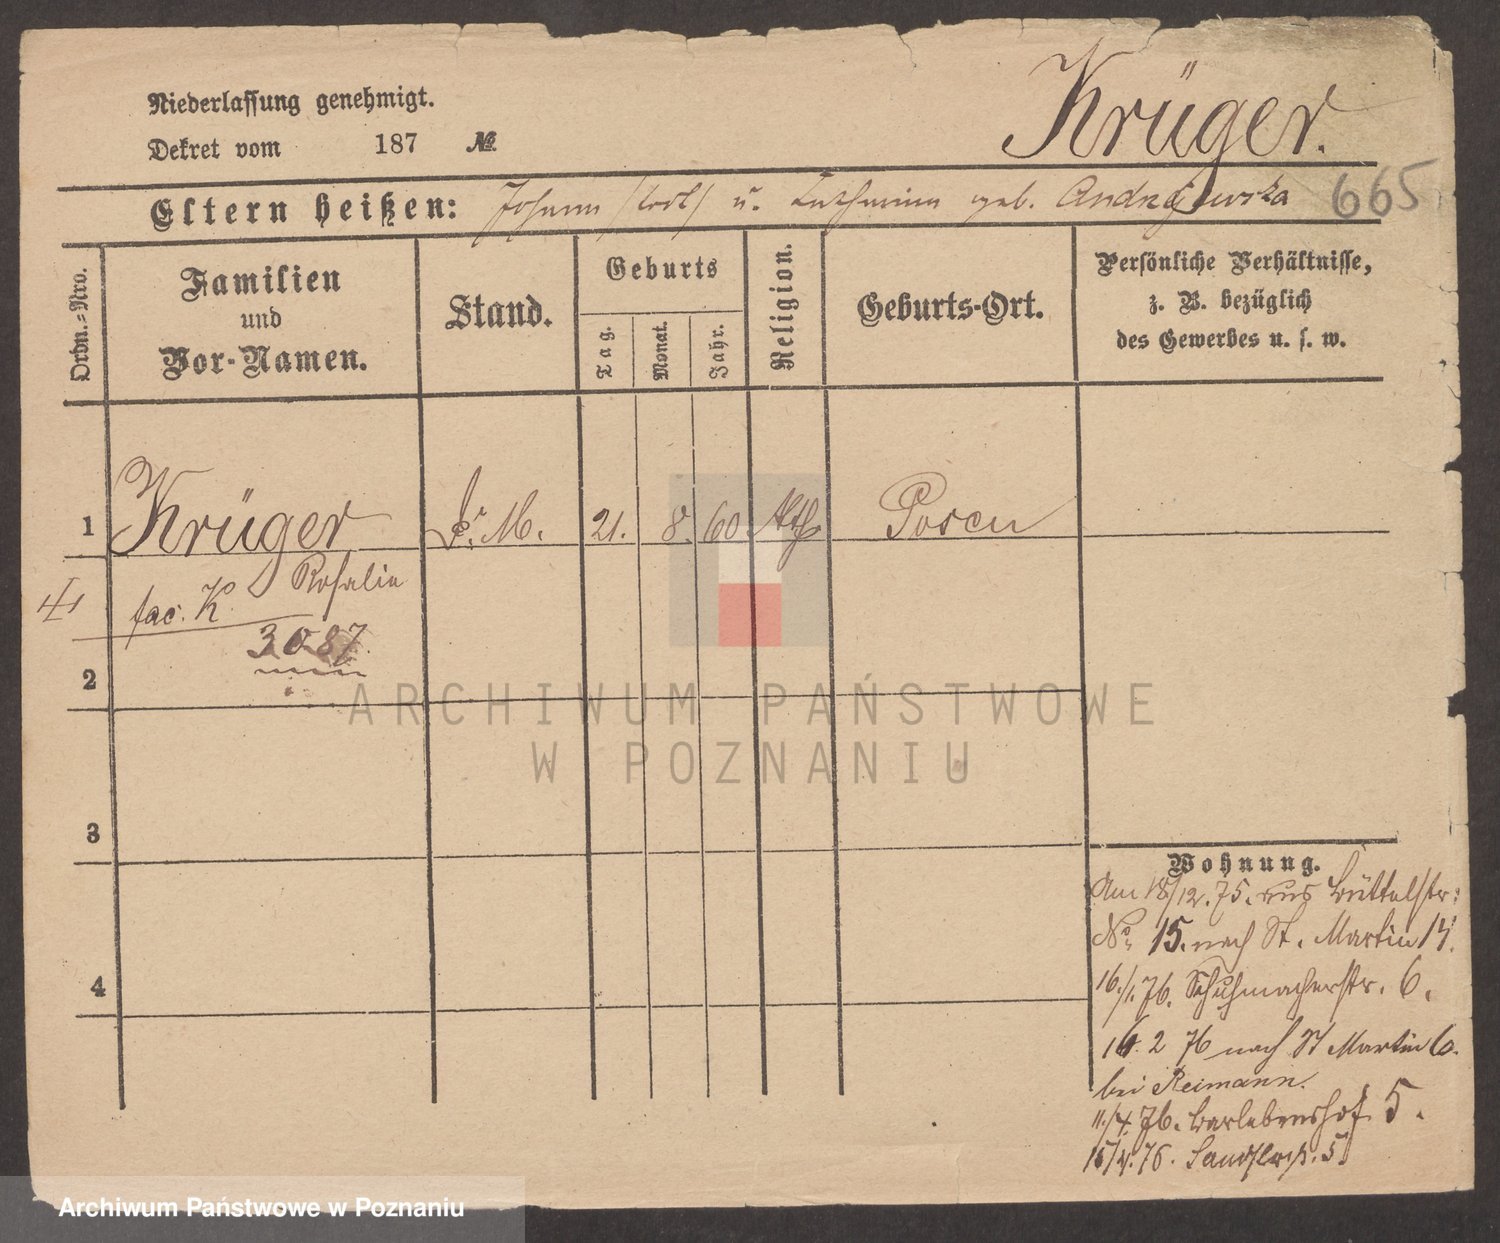 Niederlassung genehmigt.
Dekret vom 187 №
Krüger.
Eltern heißen: Johann (todt) u. Catharina geb. Andrzejewska
665
Ordn.-Nro.
Familien
und
Vor-Namen.
Stand.
Geburts
Tag.
Monat.
Jahr.
Religion.
Geburts-Ort.
Persönliche Verhältnisse,
z. B. bezüglich
des Gewerbes u. s. w.
1 Krüger D. M. 21. 8. 60 Kth Posen
Rosalie
fac. K.
3087
2
3
4
Wohnung.
Am 18/12.75. aus Büttelstr:
No. 15. nach St. Martin
16./1. 76. Schuhmacherstr. 6.
16. 2 76 nach St Martin 60.
bei Reimann.
11./4. 76. Barlebenshof 5.
76. Sandstraß. 5
ARCHIWUM PAŃSTWOWE
W POZNANIU
Archiwum Państwowe w Poznaniu